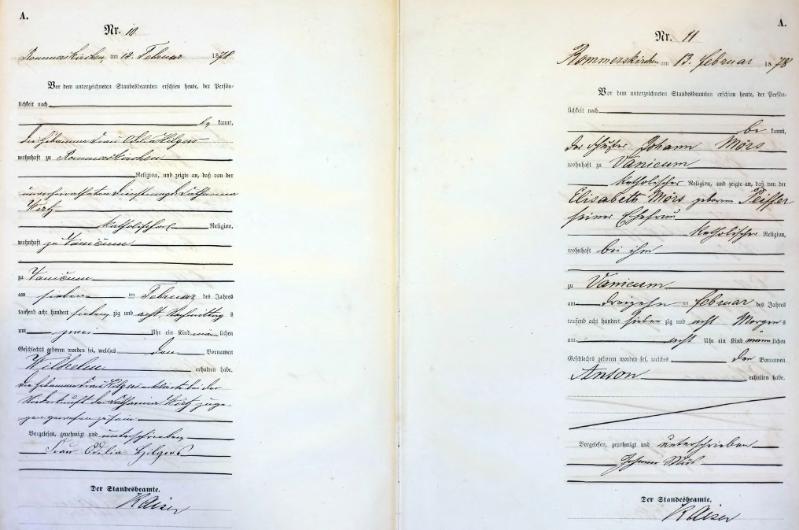 A.
Nr. 10
Rommerskirchen am 12. Februar 1878
Vor dem unterzeichneten Standesbeamten erschien heute, der Persön-
lichkeit nach
be kannt,
die Hebamme Frau Odilia Hilgers
wohnhaft zu Rommerskirchen
Religion, und zeigte an, daß von der
unverheiratheten Dienstmagd Catharina
katholischer Religion,
wohnhaft zu Vanicum
zu Vanicum
am sieben ten Februar des Jahres
tausend acht hundert sieben zig und acht Nachmittag s
um zwei Uhr ein Kind männ lichen
Geschlechts geboren worden sei, welches den Vornamen
Wilhelm
erhalten habe.
die Hebamme Frau Hilgers erklärte bei der
Niederkunft der Catharina zuge-
gen gewesen zu sein
Vorgelesen, genehmigt und unterschrieben
Frau Odilia Hilgers
Der Standesbeamte.
Kaiser
A.
Nr. 11
Rommerskirchen am 13. Februar 1878
Vor dem unterzeichneten Standesbeamten erschien heute, der Persön-
lichkeit nach
be kannt,
der Johann Mörs
wohnhaft zu Vanicum
katholischer Religion, und zeigte an, daß von der
Elisabeth Mörs geborene Peiffer
seiner Ehefrau
katholischer Religion,
wohnhaft bei ihm
zu Vanicum
am dreizehn ten Februar des Jahres
tausend acht hundert sieben zig und acht Morgens
um acht Uhr ein Kind männ lichen
Geschlechts geboren worden sei, welches den Vornamen
Anton
erhalten habe.
Vorgelesen, genehmigt und unterschrieben
Johann Mörs
Der Standesbeamte.
Kaiser